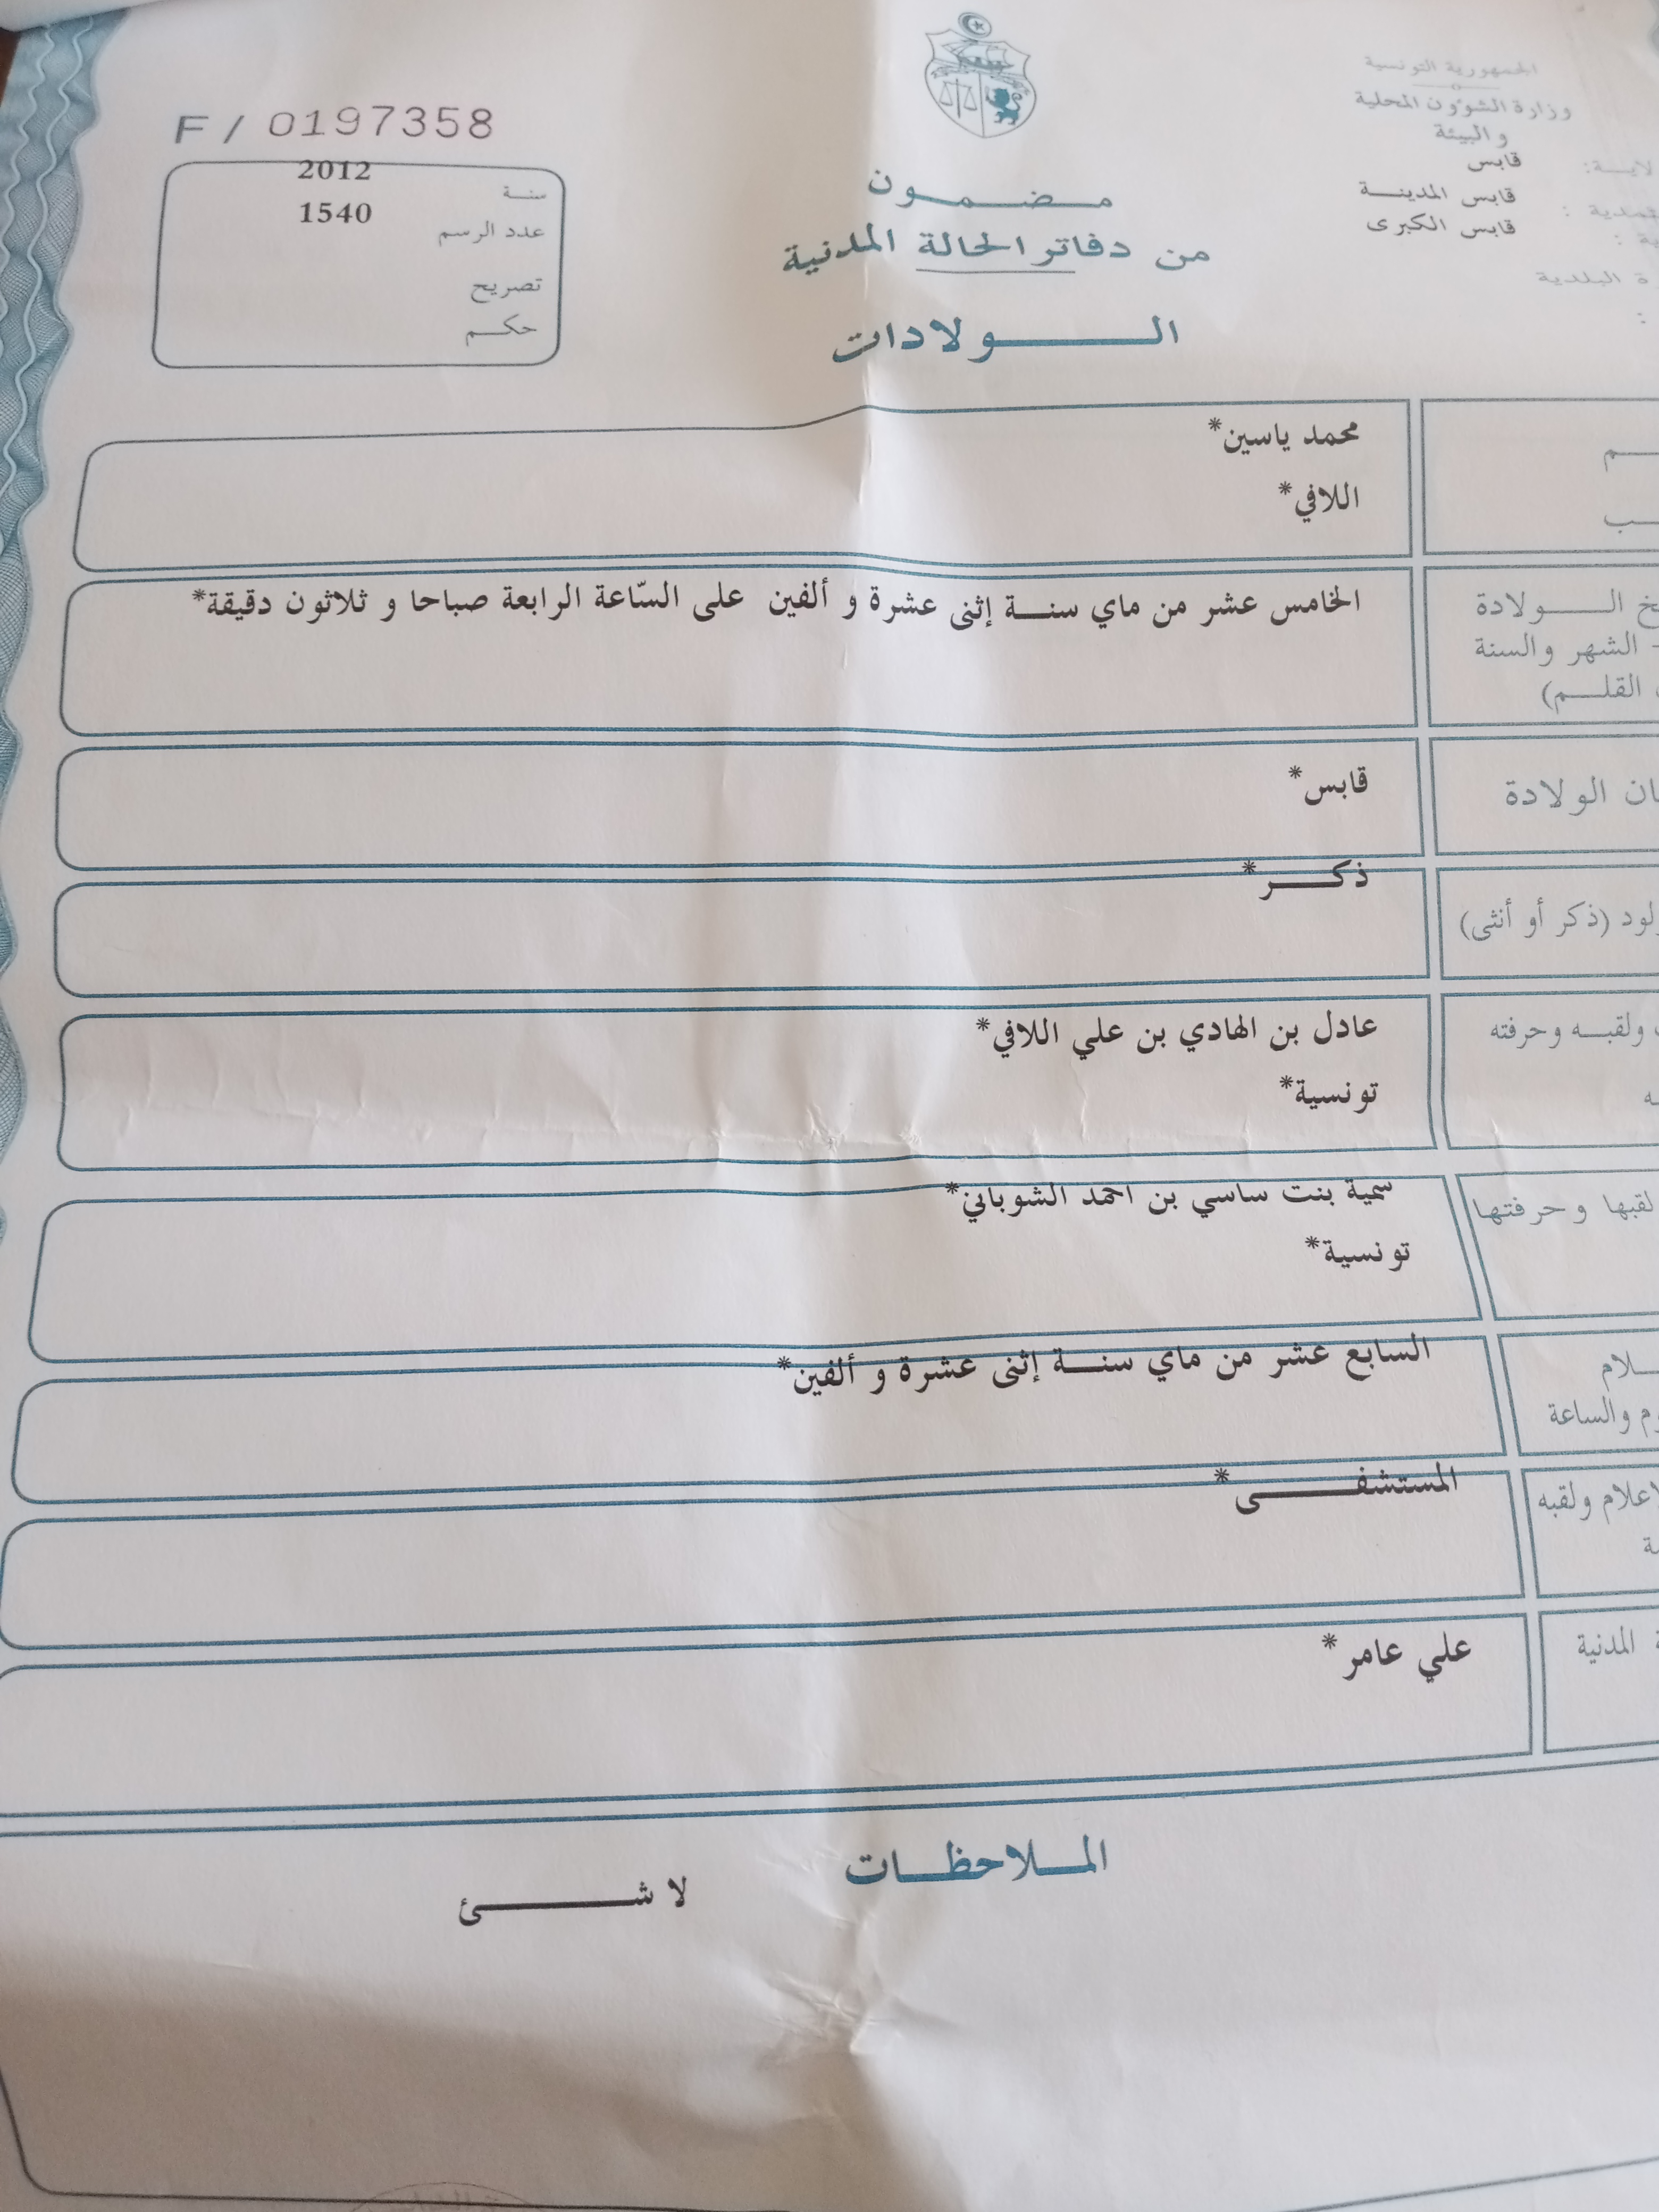 F / 0197358
الجمهورية التونسية
وزارة الشؤون المحلية
و البيئة
قابس
قابس المدينة
قابس الكبرى
البلدية
سنة 2012
عدد الرسم 1540
تصريح
حكم
مضمون
من دفاتر الحالة المدنية
الولادات
محمد ياسين*
اللافي*
الولادة الخامس عشر من ماي سنة إثنى عشرة و ألفين على السّاعة الرابعة صباحا و ثلاثون دقيقة*
- الشهر والسنة
القلم)
الولادة قابس*
(ذكر أو أنثى) ذكر*
ولقبه وحرفته عادل بن الهادي بن علي اللافي*
تونسية*
لقبها و حرفتها سمية بنت ساسي بن احمد الشوباني*
تونسية*
السابع عشر من ماي سنة إثنى عشرة و ألفين*
والساعة
ولقبه المستشفى*
المدنية علي عامر*
الملاحظات
لا شئ